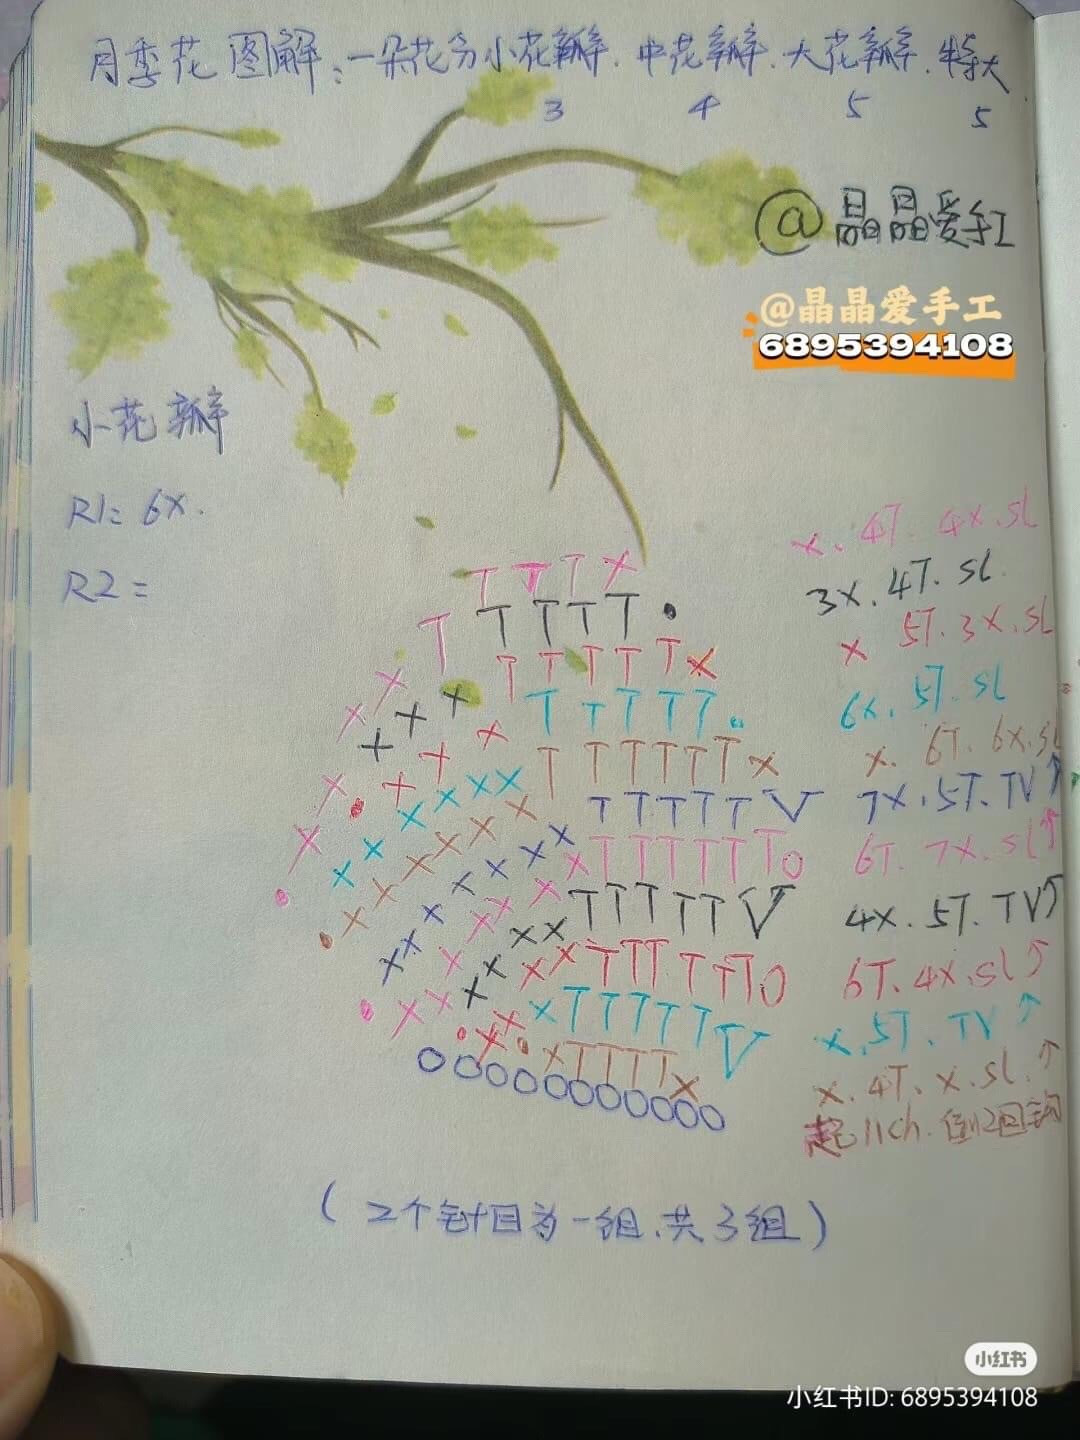 月季花图解：一朵花分小花瓣.中花瓣.大花瓣.特大
3 4 5 5
@晶晶爱手工
@晶晶爱手工
6895394108
小花瓣
R1= 6X.
R2=
x. 4T. 4x. sl
3x. 4T. sl.
x 5T. 3x. sl
6x. 5T. sl
x. 6T. 6x. sl
7x. 5T. TV ↑
6T. 7x. sl ↑
4x. 5T. TV ↑
6T. 4x. sl ↑
x. 5T. TV ↑
x. 4T. x. sl. ↑
起11ch. 倒2回钩
(2个针目为一组.共3组)
小红书
小红书ID: 6895394108